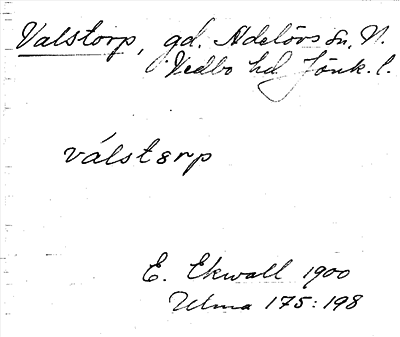 Valstorp, gd. Adelövs sn. N.
Vedbo hd. Jönk. l.
válstɜrp
E. Ekwall 1900
Ulma 175:198